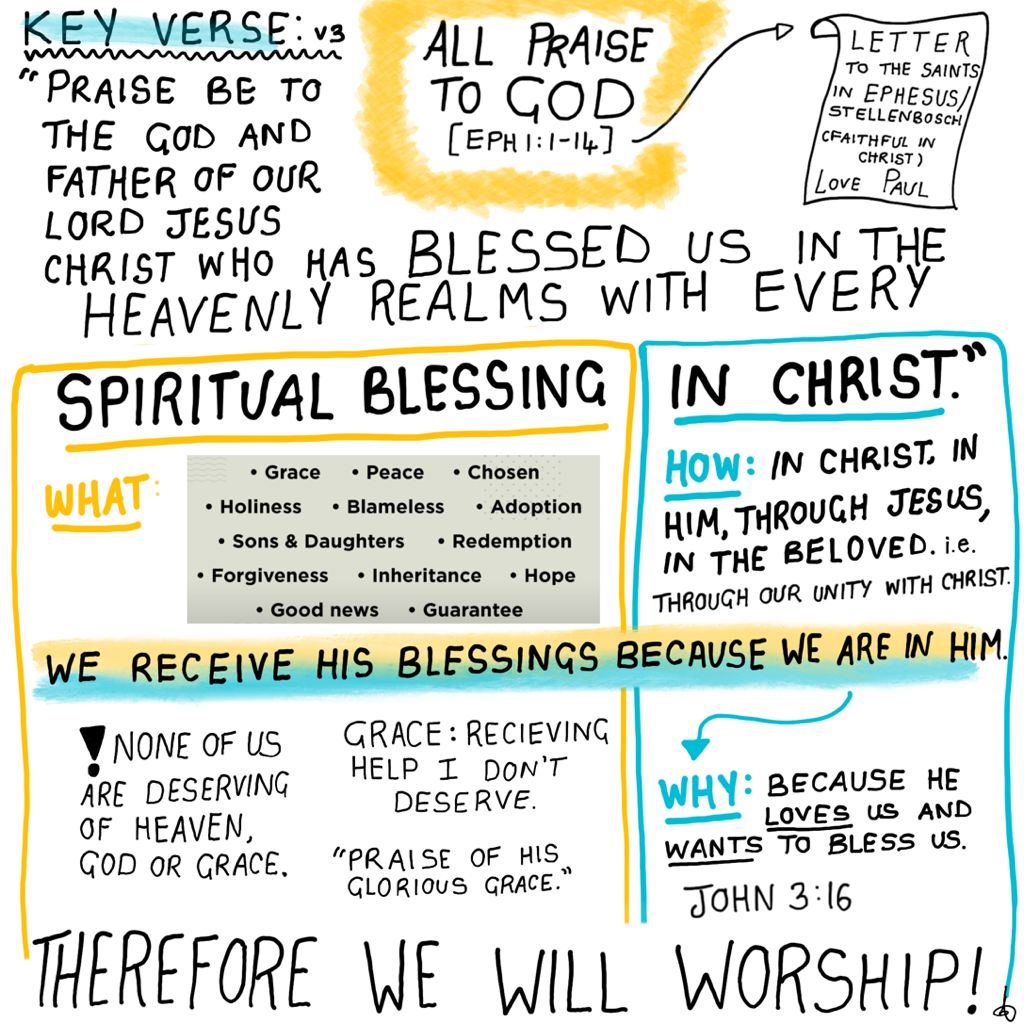 KEY VERSE: v3
ALL PRAISE
TO GOD
[EPH 1:1-14]
LETTER
TO THE SAINTS
IN EPHESUS/
STELLENBOSCH
(FAITHFUL IN
CHRIST)
LOVE PAUL
"PRAISE BE TO
THE GOD AND
FATHER OF OUR
LORD JESUS
CHRIST WHO HAS BLESSED US IN THE
HEAVENLY REALMS WITH EVERY
SPIRITUAL BLESSING
IN CHRIST."
WHAT:
• Grace • Peace • Chosen
• Holiness • Blameless • Adoption
• Sons & Daughters • Redemption
• Forgiveness • Inheritance • Hope
• Good news • Guarantee
HOW: IN CHRIST, IN
HIM, THROUGH JESUS,
IN THE BELOVED. i.e.
THROUGH OUR UNITY WITH CHRIST.
WE RECEIVE HIS BLESSINGS BECAUSE WE ARE IN HIM.
! NONE OF US
ARE DESERVING
OF HEAVEN,
GOD OR GRACE.
GRACE: RECIEVING
HELP I DON'T
DESERVE.
"PRAISE OF HIS
GLORIOUS GRACE."
WHY: BECAUSE HE
LOVES US AND
WANTS TO BLESS US.
JOHN 3:16
THEREFORE WE WILL WORSHIP!